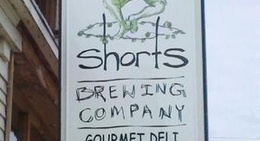 shorts
BREWING
COMPANY
GOURMET DELI